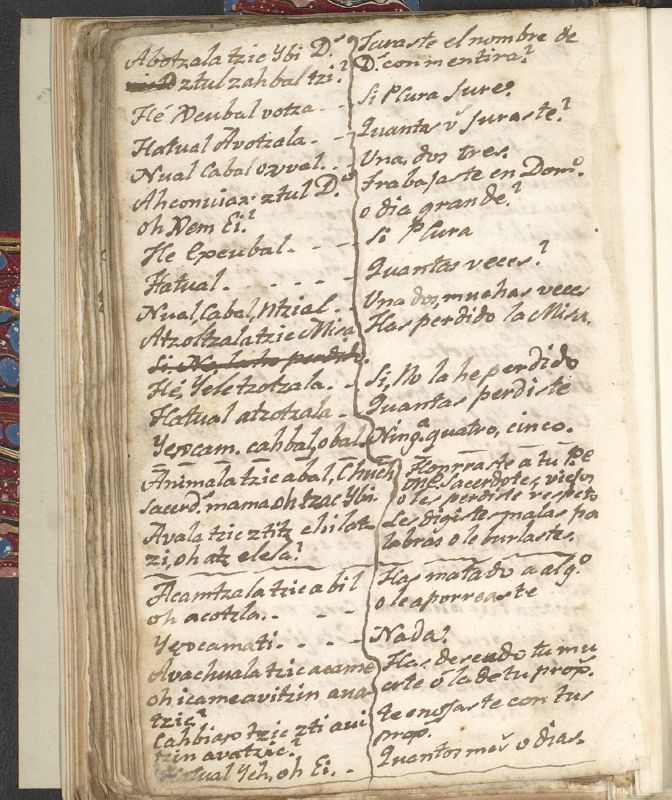 Abotzala tzic Ybi D.s
ztulzahbal tzi?
Hé Neubal votza - -
Hatual Avotzala - -
Nual Cabal oxval. - -
Ahconviax ztul D.o
oh Nem Ei?
He Expeubal. - - -
Hatual. - - - - -
Nual, Cabal, Ntzial. - -
Atzoltzala tzic Misa
Si, No, la he perdido.
Hé, Yele tzotzala. - -
Hatual atzotzala - -
cam. cahbal, obal
Animala tzic abal, Chuch
Sacerd.e mama oh tzac Ybi.
Avala tzic ztitz chilatz
zi, oh atz elesa?
Acamtzala tzic abil
oh acotzla. - - -
camati. - - - -
Avachuala tzic acame
oh icame avitzin ava-
tzic?
Cahbiax tzic zti avi
tzin avatzic?
Hatual Yeh, oh Ei. - -
Juraste el nombre de
D.s con mentira?
Si P. Jure.
Quantas v.s juraste?
Una, dos tres.
trabajaste en Dom.o
o dia grande?
Si P.
Quantas veces?
Una dos, muchas veces
Has perdido la Misa.
Si, No la he perdido
Quantas perdiste
Ning.a quatro, cinco.
Honrraste a tu P.e
M.e Sacerdotes, viejos
o les perdiste respeto
Les digiste malas pa
labras o le burlastes.
Has matado a alg.o
o le aporreaste
Nada?
Has deseado tu mu
erte ó la de tu prop.
te enojaste con tus
prop.
Quantos mes o dias.